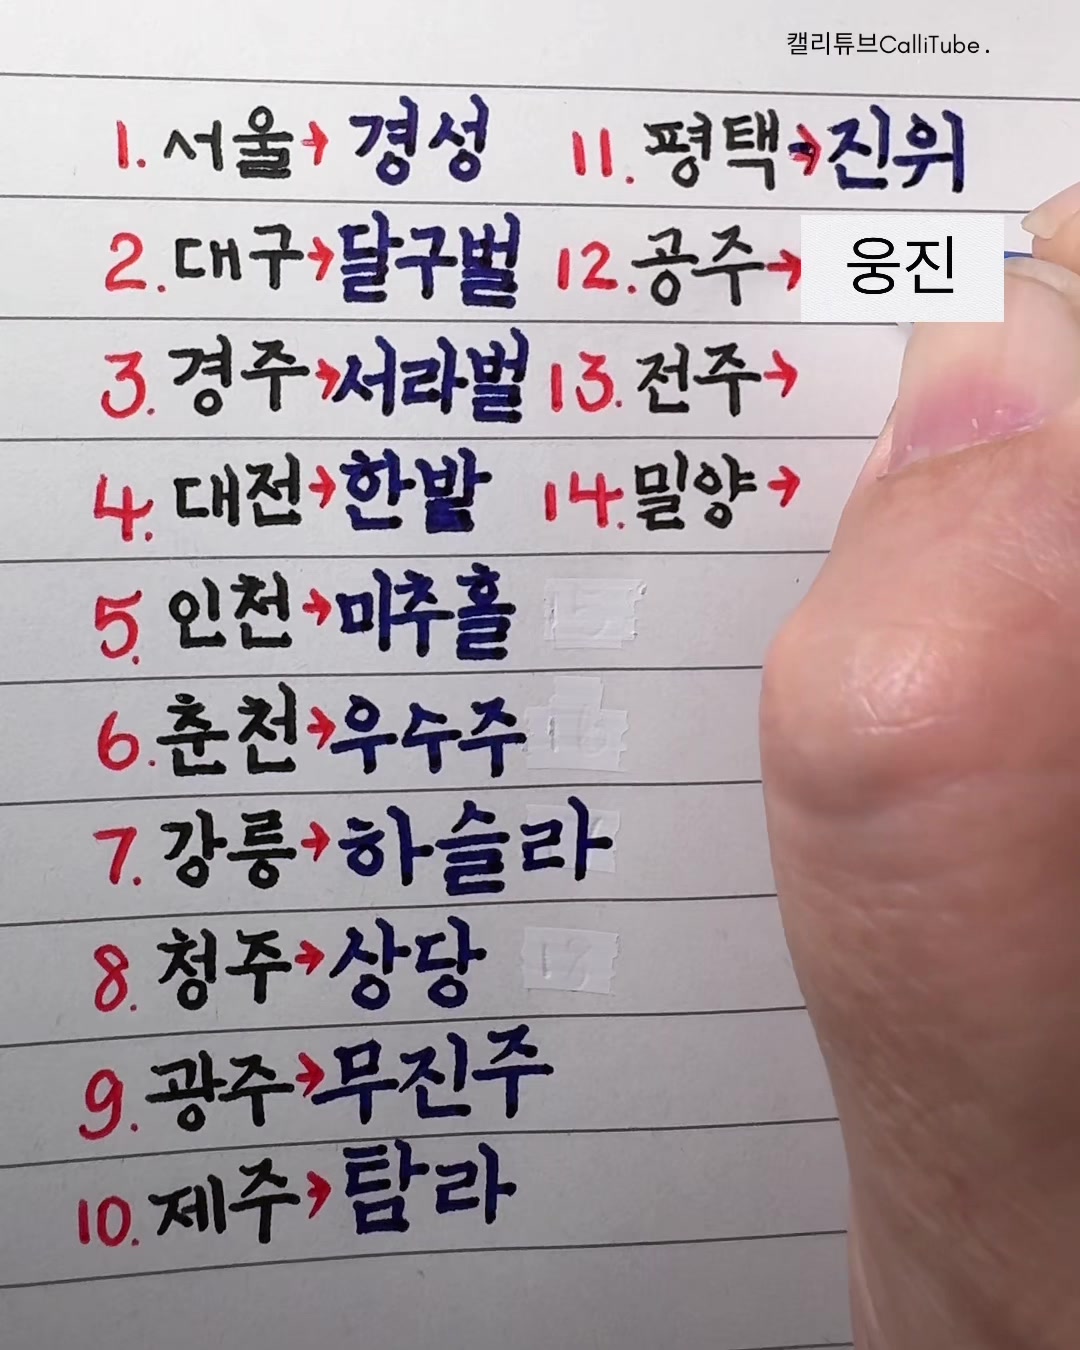 캘리튜브CalliTube.
1. 서울→경성
2. 대구→달구벌
3. 경주→서라벌
4. 대전→한밭
5. 인천→미추홀
6. 춘천→우수주
7. 강릉→하슬라
8. 청주→상당
9. 광주→무진주
10. 제주→탐라
11. 평택→진위
12. 공주→웅진
13. 전주→
14. 밀양→